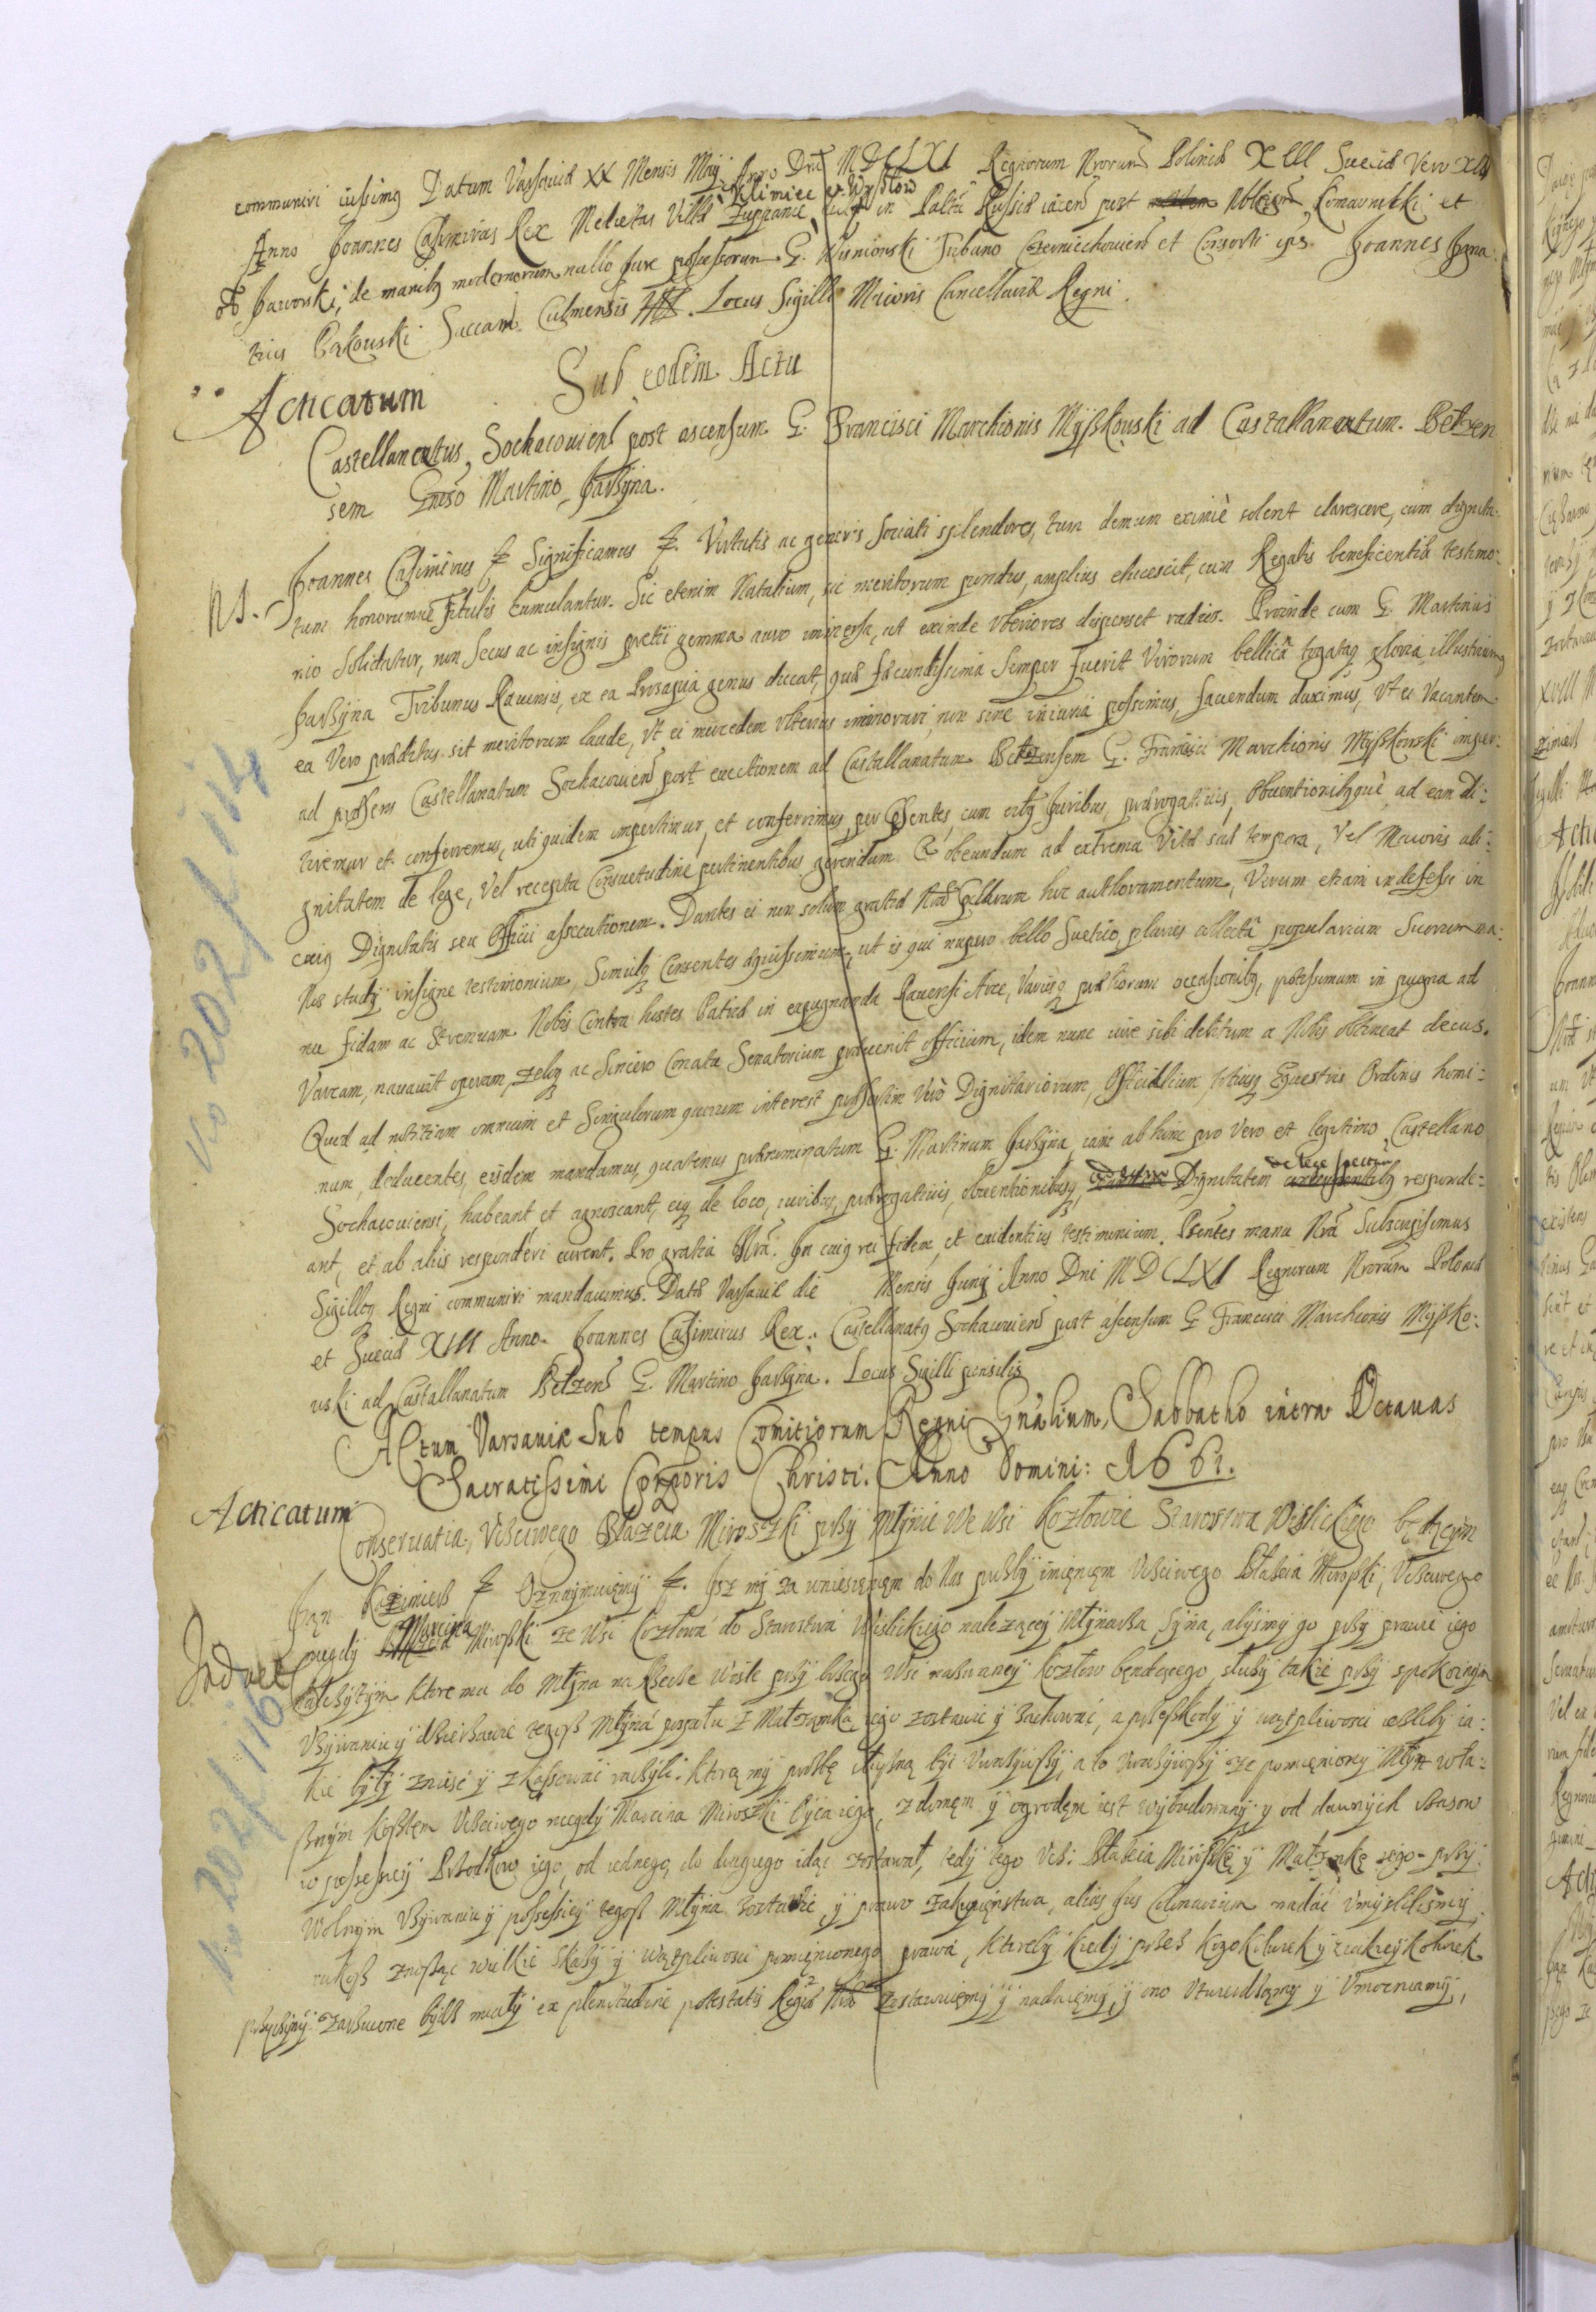 communiri iussimus Datum Varsaviæ XX Mensis Maij Anno Dni MDCLXI Regnorum Nrorum Poloniæ XIII Sueciæ Vero XIII
Klimiec et Wyżłow
Anno Joannes Casimirus Rex Medietas Villæ Zuppanie in Palttu Russiæ iacen post Nobilium Komarnicki et
Jaworski, de manibus modernorum nullo Jure possessorum G. Wisniowski Tribuno Czerniechovien et Consorti eius. Joannes Igna:
tius Bąkowski Succam. Culmensis Locus Sigilli Maioris Cancellariæ Regni.
Acticatum Sub eodem Actu
Castellanatus Sochacovien post ascensum G. Francisci Marchionis Myszkowski ad Castallanatum Betzen
sem Gneso Martino Jarzyna.
NS. Joannes Casimirus Significamus Virtutis ac generis sociati splendores, tum demum eximiè solent clarescere, cum dignita:
tum honorumue titulis cumulantur. Sic etenim Natalium, ac meritorum pondus, amplius elucescit, cum Regalis beneficentiæ testimo:
nio solidatur, non secus ac insignis pretii gemma auro immersa, ut exinde vlteriores dispenset radios. Proinde cum G. Martinus
Jarzyna Tribunus Ravensis, ex ea Prosapia genus ducat, quæ fæcundissima semper fuerit Virorum bellicâ togataq gloria illustrium,
ea Vero præditus sit meritorum laude, Vt ei mercedem vlterius immorari, non sine iniuria possimus, fauendum duximus, Vt ei Vacantem
ad præsens Castellanatum Sochacovien post euectionem ad Castallanatum Betzensem G. Francisci Marchionis Myszkowski imper:
tiremur et conferremus, uti quidem impertimur, et conferrimus, per Præsentes, cum omnibus Juribus, prærogatiuis, obuentionibusque, ad eam Di:
gnitatem de lege, Vel recepta Consuetudine pertinentibus gerendum et obeundum ad extrema Vitæ suæ tempora, Vel Maioris ali:
cuius Dignitatis seu Officii assecutionem. Dantes ei non solum gratiæ Nræ hoc authoramentum, Verum etiam indefessi in
Nos studij insigne testimonium, Simulq Censentes dignissimum, ut is qui nupero bello Suetico, pluries collectâ popularium Suorum ma:
nu fidam ac strenuam Nobis Contra hostes Patriæ in expugnanda Ravensi Arce, Variisq præliorum occasionibus, potissimum in pugna ad
Varcam, nauauit operam, zeloq ac sincero Conatu Senatorium præuenit officium, idem nunc iure sibi debitum a Nobis obtineat decus.
Quod ad notitiam omnium et Singulorum quorum interest præsertim Verò Dignitariorum, Officialium, totiusq Equestris Ordinis homi:
num, deducentes, eisdem mandamus, quatenus prænominatum G. Martinum Jarzyna, iam ab hinc pro Vero et legitimo Castellano
Sochacoviensi, habeant et agnoscant, eiq de loco, iuribus, prærogatiuis, obuentionibusq Dignitatem de lege spectan responde:
ant, et ab aliis responderi curent. Pro gratia Nra. In cuius rei fidem, et euidentius testimonium. Præsentes manu Nra Subscripsimus
Sigilloq Regni communiri mandauimus. Datæ Varsaviæ die Mensis Junij Anno Dni MDCLXI Regnorum Nrorum Poloniæ
et Sueciæ XIII Anno. Joannes Casimirus Rex. Castellanatus Sochacovien post ascensum G Francisci Marchionis Myszko:
wski ad Castallanatum Betzen G. Martino Jarzyna. Locus Sigilli pensilis
Actum Varsaviæ Sub tempus Comitiorum Regni Gnalium, Sabbatho intra Octauas
Sacratissimi Corporis Christi. Anno Domini: 1661.
Acticatum Conseruatia, Vczciwego Błażeia Miroszki przy Młynie We Wsi Kozłowie Starostwa Wislickiego będącym
Jan Kazimierz Oznaymuięmy Isz my za wniesięnięm do Nas prozby imięnięm Vczciwego Błażeia Miroszki, Vczciwego
niegdy Marcina Miroszki ze Wsi Kozłowa do Starostwa Wislickiego należącey Młynarza Syna, abysmy go przy prawie iego
Induct
należytym które ma do Młyna na Rzece Wisle przy brzegu Wsi nazwaney Kozłow będącego, także przy spokoinym
Vżywaniu y dzierżawie tegosz Młyna pospołu z Małżonką iego zostawić y Zachować, a przeszkody y wątpliwosci ieżliby ia:
kie były znieść y zkassować raczyli. Którą my prozbę słuszną być Vważywszy, a to Vważywszy że pomięniony Młyn wła:
sznym kosztem Vczciwego niegdy Marcina Miroszki Oyca iego, z domęm y ogrodęm iest wybudowany y od dawnych czasow
w possessyi Przodkow iego, od iednego, do drugiego idąc zostawał, tedy tego Vcz: Błażeia Miroszkę y Małżonkę iego przy
Wolnym Vżywaniu y possessiey tegosz Młyna zostawić, y prawo zakupięnstwa, alias Jus Coloniarium nadać Vmysliliśmy
iakosz znosząc wszelkie skazy y wątpliwosci pomięnionego prawa, któreby kiedy przez kogokolwiek y ziakieykolwiek
przyczyny zarzucone bydź miały ex plenitudine potestatis Regiæ Nræ Zostawuięmy y nadaięmy, y ono Vtwierdzamy y Vmacniamy,
202/114
202/116